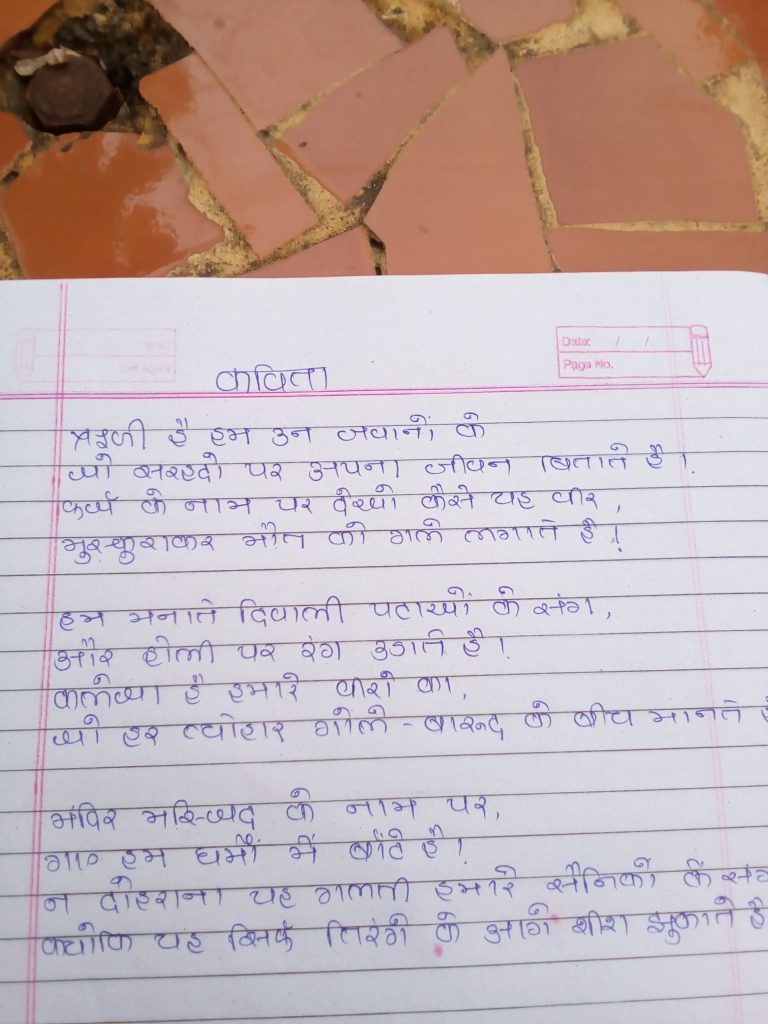 Date: / /
Page No.
कविता
ऋणी है हम उन जवानों के
जो सरहदो पर अपना जीवन बिताते है।
फर्ज के नाम पर देखो कैसे यह वीर,
मुस्कुराकर मौत को गले लगाते है!
हम मनाते दिवाली पटाखों के संग,
और होली पर रंग उडाते है।
कलेजा है हमारे वीरो का,
जो हर त्योहार गोले-बारुद के बीच मानते है
मंदिर मस्जिद के नाम पर,
हम धर्मों में बाँटे है!
न दोहराना यह गलती हमारे सैनिको के संग
क्योकि यह सिर्फ तिरंगे के आगे शीश झुकाते है